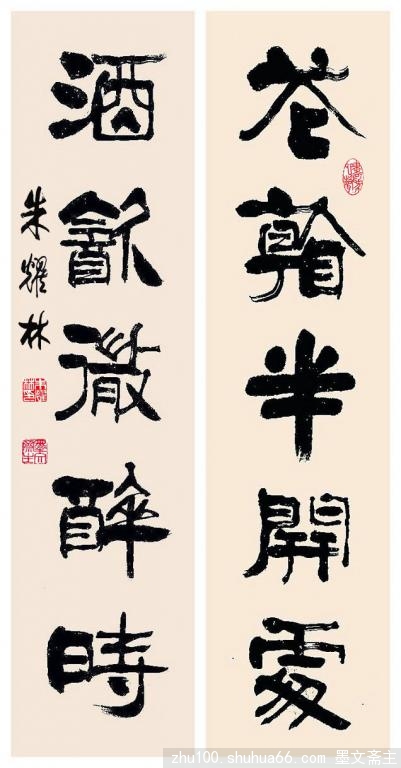 花看半開處
酒飲微醉時
朱耀林
zhu100.shuhua66.com 墨文斋主